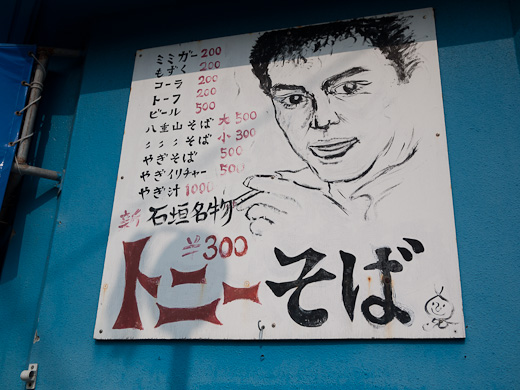 ミミガー200
もずく 200
コーラ 200
トーフ 200
ビール 500
八重山そば 大 500
〃 〃 〃 そば 小 300
やぎそば 500
やぎイリチャー 500
やぎ汁 1000
新 石垣名物
¥300
トニーそば